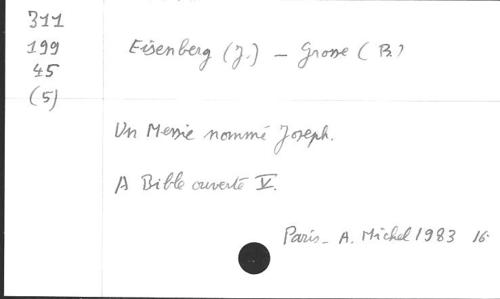 311
199
45
(5)
Eisenberg (J.) - Grosse (B.)
Un Messie nommé Joseph.
A Bible ouverte V.
Paris - A. Michel 1983 16